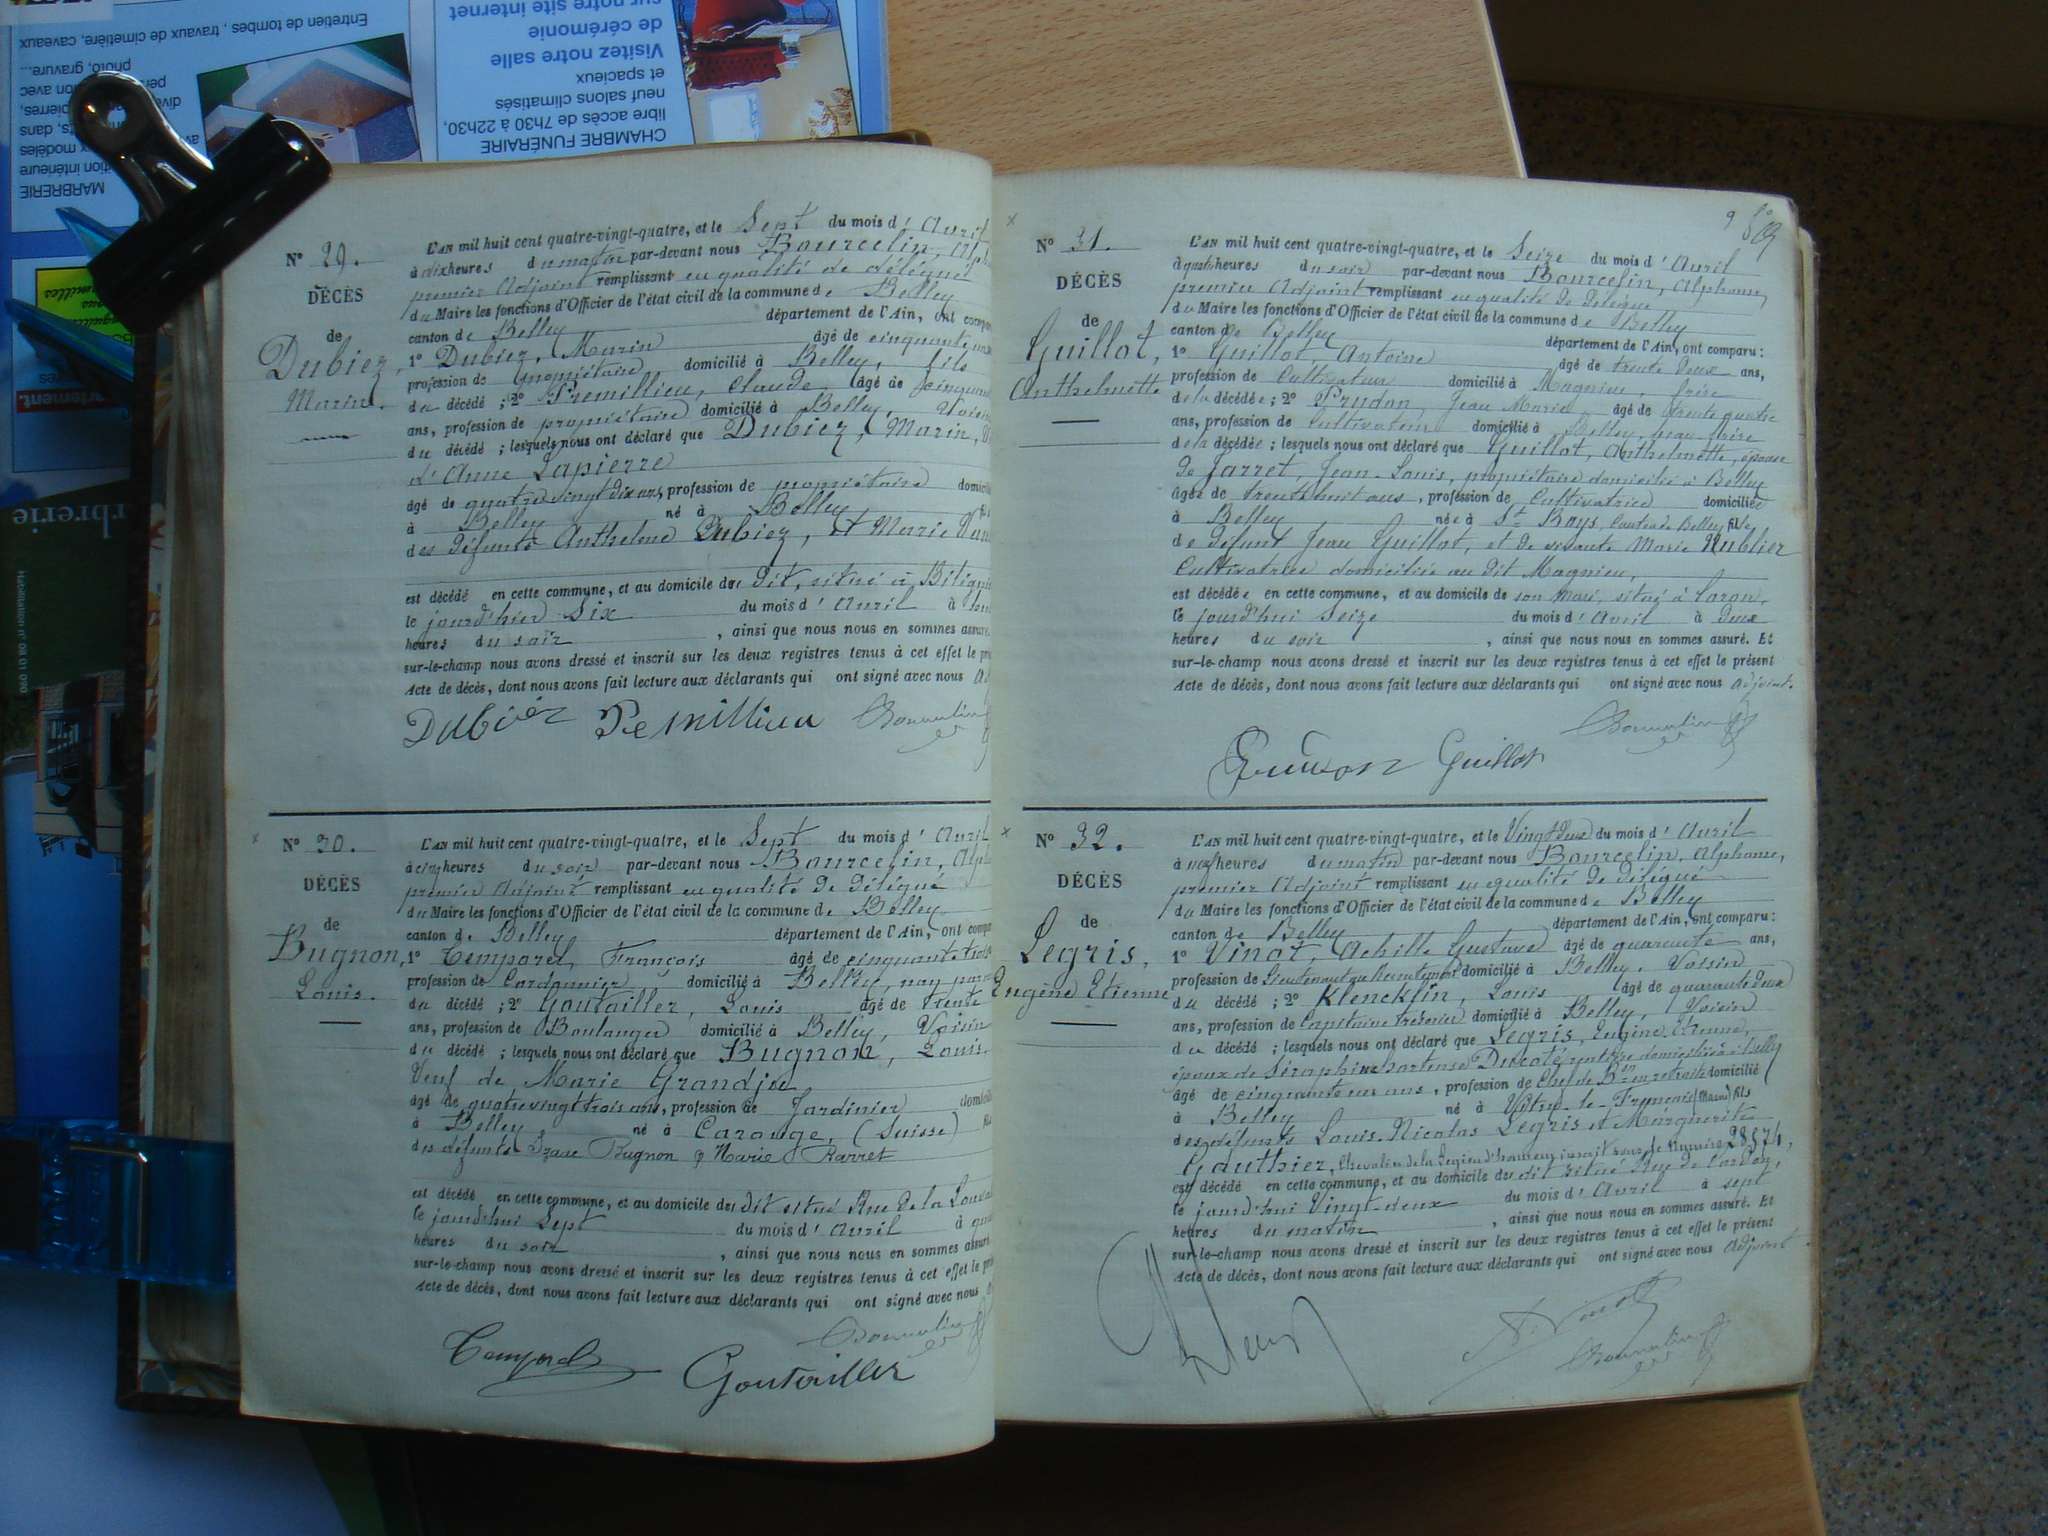 Entretien de tombes, travaux de cimetière, caveaux
photo, gravure...
MARBRERIE
Visitez notre salle
de cérémonie
sur notre site internet
CHAMBRE FUNÉRAIRE
libre accès de 7h30 à 22h30,
neuf salons climatisés
et spacieux
N° 29.
DÉCÈS
de
Dubiez,
Marin.
L'AN mil huit cent quatre-vingt-quatre, et le Sept du mois d'Avril
à dix heures du matin par-devant nous Bourcelin, Alph
premier Adjoint remplissant en qualité de délégué
du Maire les fonctions d'Officier de l'état civil de la commune de Belley
canton de Belley département de l'Ain, ont compa
1° Dubiez, Marin âgé de cinquante
profession de propriétaire domicilié à Belley, fils
du décédé ; 2° Premillieu, Claude, âgé de cinquan
ans, profession de propriétaire domicilié à Belley, Voisin
du décédé ; lesquels nous ont déclaré que Dubiez, Marin,
d'Anne Lapierre
âgé de quatre vingt dix ans, profession de propriétaire domicilié
à Belley né à Belley fils
des défunts Anthelme Dubiez, et Marie
est décédé en cette commune, et au domicile du dit, situé à
le jourd'hier Six du mois d'Avril à
heures du soir, ainsi que nous nous en sommes assuré.
sur-le-champ nous avons dressé et inscrit sur les deux registres tenus à cet effet le pré
Acte de décès, dont nous avons fait lecture aux déclarants qui ont signé avec nous
Dubiez Premillieu
N° 30.
DÉCÈS
de
Bugnon,
Louis.
L'AN mil huit cent quatre-vingt-quatre, et le Sept du mois d'Avril
à cinq heures du soir par-devant nous Bourcelin, Alp
premier Adjoint remplissant en qualité de délégué
du Maire les fonctions d'Officier de l'état civil de la commune de Belley
canton de Belley département de l'Ain, ont compa
1° Temporel, François âgé de cinquante trois
profession de Cordonnier domicilié à Belley, non paren
du décédé ; 2° Goutailler, Louis âgé de trente
ans, profession de Boulanger domicilié à Belley, Voisin
du décédé ; lesquels nous ont déclaré que Bugnon, Louis,
Veuf de Marie Grandju
âgé de quatre vingt trois ans, profession de Jardinier domicilié
à Belley né à Carouge, (Suisse) fils
des défunts Izaac Bugnon & Marie Barret
est décédé en cette commune, et au domicile du dit situé Rue de la
le jourd'hui Sept du mois d'Avril à
heures du soir, ainsi que nous nous en sommes assuré
sur-le-champ nous avons dressé et inscrit sur les deux registres tenus à cet effet le pré
Acte de décès, dont nous avons fait lecture aux déclarants qui ont signé avec nous
Temporel Goutailler
N° 31.
DÉCÈS
de
Guillot,
Anthelmette
L'AN mil huit cent quatre-vingt-quatre, et le Seize du mois d'Avril
à quatre heures du soir par-devant nous Bourcelin, Alphonse,
premier Adjoint remplissant en qualité de délégué
du Maire les fonctions d'Officier de l'état civil de la commune de Belley
canton de Belley département de l'Ain, ont comparu :
1° Guillot, Antoine âgé de trente deux ans,
profession de Cultivateur domicilié à Magnieu, frère
de la décédée ; 2° Prudon, Jean Marie âgé de trente quatre
ans, profession de Cultivateur domicilié à Belley, beau-frère
de la décédée ; lesquels nous ont déclaré que Guillot, Anthelmette, épouse
de Jarret, Jean-Louis, propriétaire domicilié à Belley
âgée de trente huit ans, profession de Cultivatrice domiciliée
à Belley née à St Boys, Canton de Belley fille
de défunt Jean Guillot, et de vivante Marie Nublier
Cultivatrice domiciliée au dit Magnieu,
est décédée en cette commune, et au domicile de son mari, situé à
le jourd'hui seize du mois d'Avril à deux
heures du soir, ainsi que nous nous en sommes assuré. Et
sur-le-champ nous avons dressé et inscrit sur les deux registres tenus à cet effet le présent
Acte de décès, dont nous avons fait lecture aux déclarants qui ont signé avec nous adjoint.
Prudon Guillot
N° 32.
DÉCÈS
de
Legris,
Eugène Etienne
L'AN mil huit cent quatre-vingt-quatre, et le Vingt deux du mois d'Avril
à neuf heures du matin par-devant nous Bourcelin, Alphonse,
premier Adjoint remplissant en qualité de délégué
du Maire les fonctions d'Officier de l'état civil de la commune de Belley
canton de Belley département de l'Ain, ont comparu :
1° Vinot, Achille Gustave âgé de quarante ans,
profession de Lieutenant au Recrutement domicilié à Belley, Voisin
du décédé ; 2° Klencklin, Louis âgé de quarante deux
ans, profession de Capitaine trésorier domicilié à Belley, Voisin
du décédé ; lesquels nous ont déclaré que Legris, Eugène Etienne,
époux de Séraphine hortense Ducoté, rentière domiciliée à Belley
âgé de cinquante un ans, profession de Chef de Bon en retraite domicilié
à Belley né à Vitry-le-Français (Marne) fils
des défunts Louis Nicolas Legris et Marguerite
Gauthier, Chevalier de la Légion d'honneur inscrit sous le Numéro 28574,
est décédé en cette commune, et au domicile du dit situé Rue de
le jourd'hui Vingt-deux du mois d'Avril à sept
heures du matin, ainsi que nous nous en sommes assuré. Et
sur-le-champ nous avons dressé et inscrit sur les deux registres tenus à cet effet le présent
Acte de décès, dont nous avons fait lecture aux déclarants qui ont signé avec nous adjoint